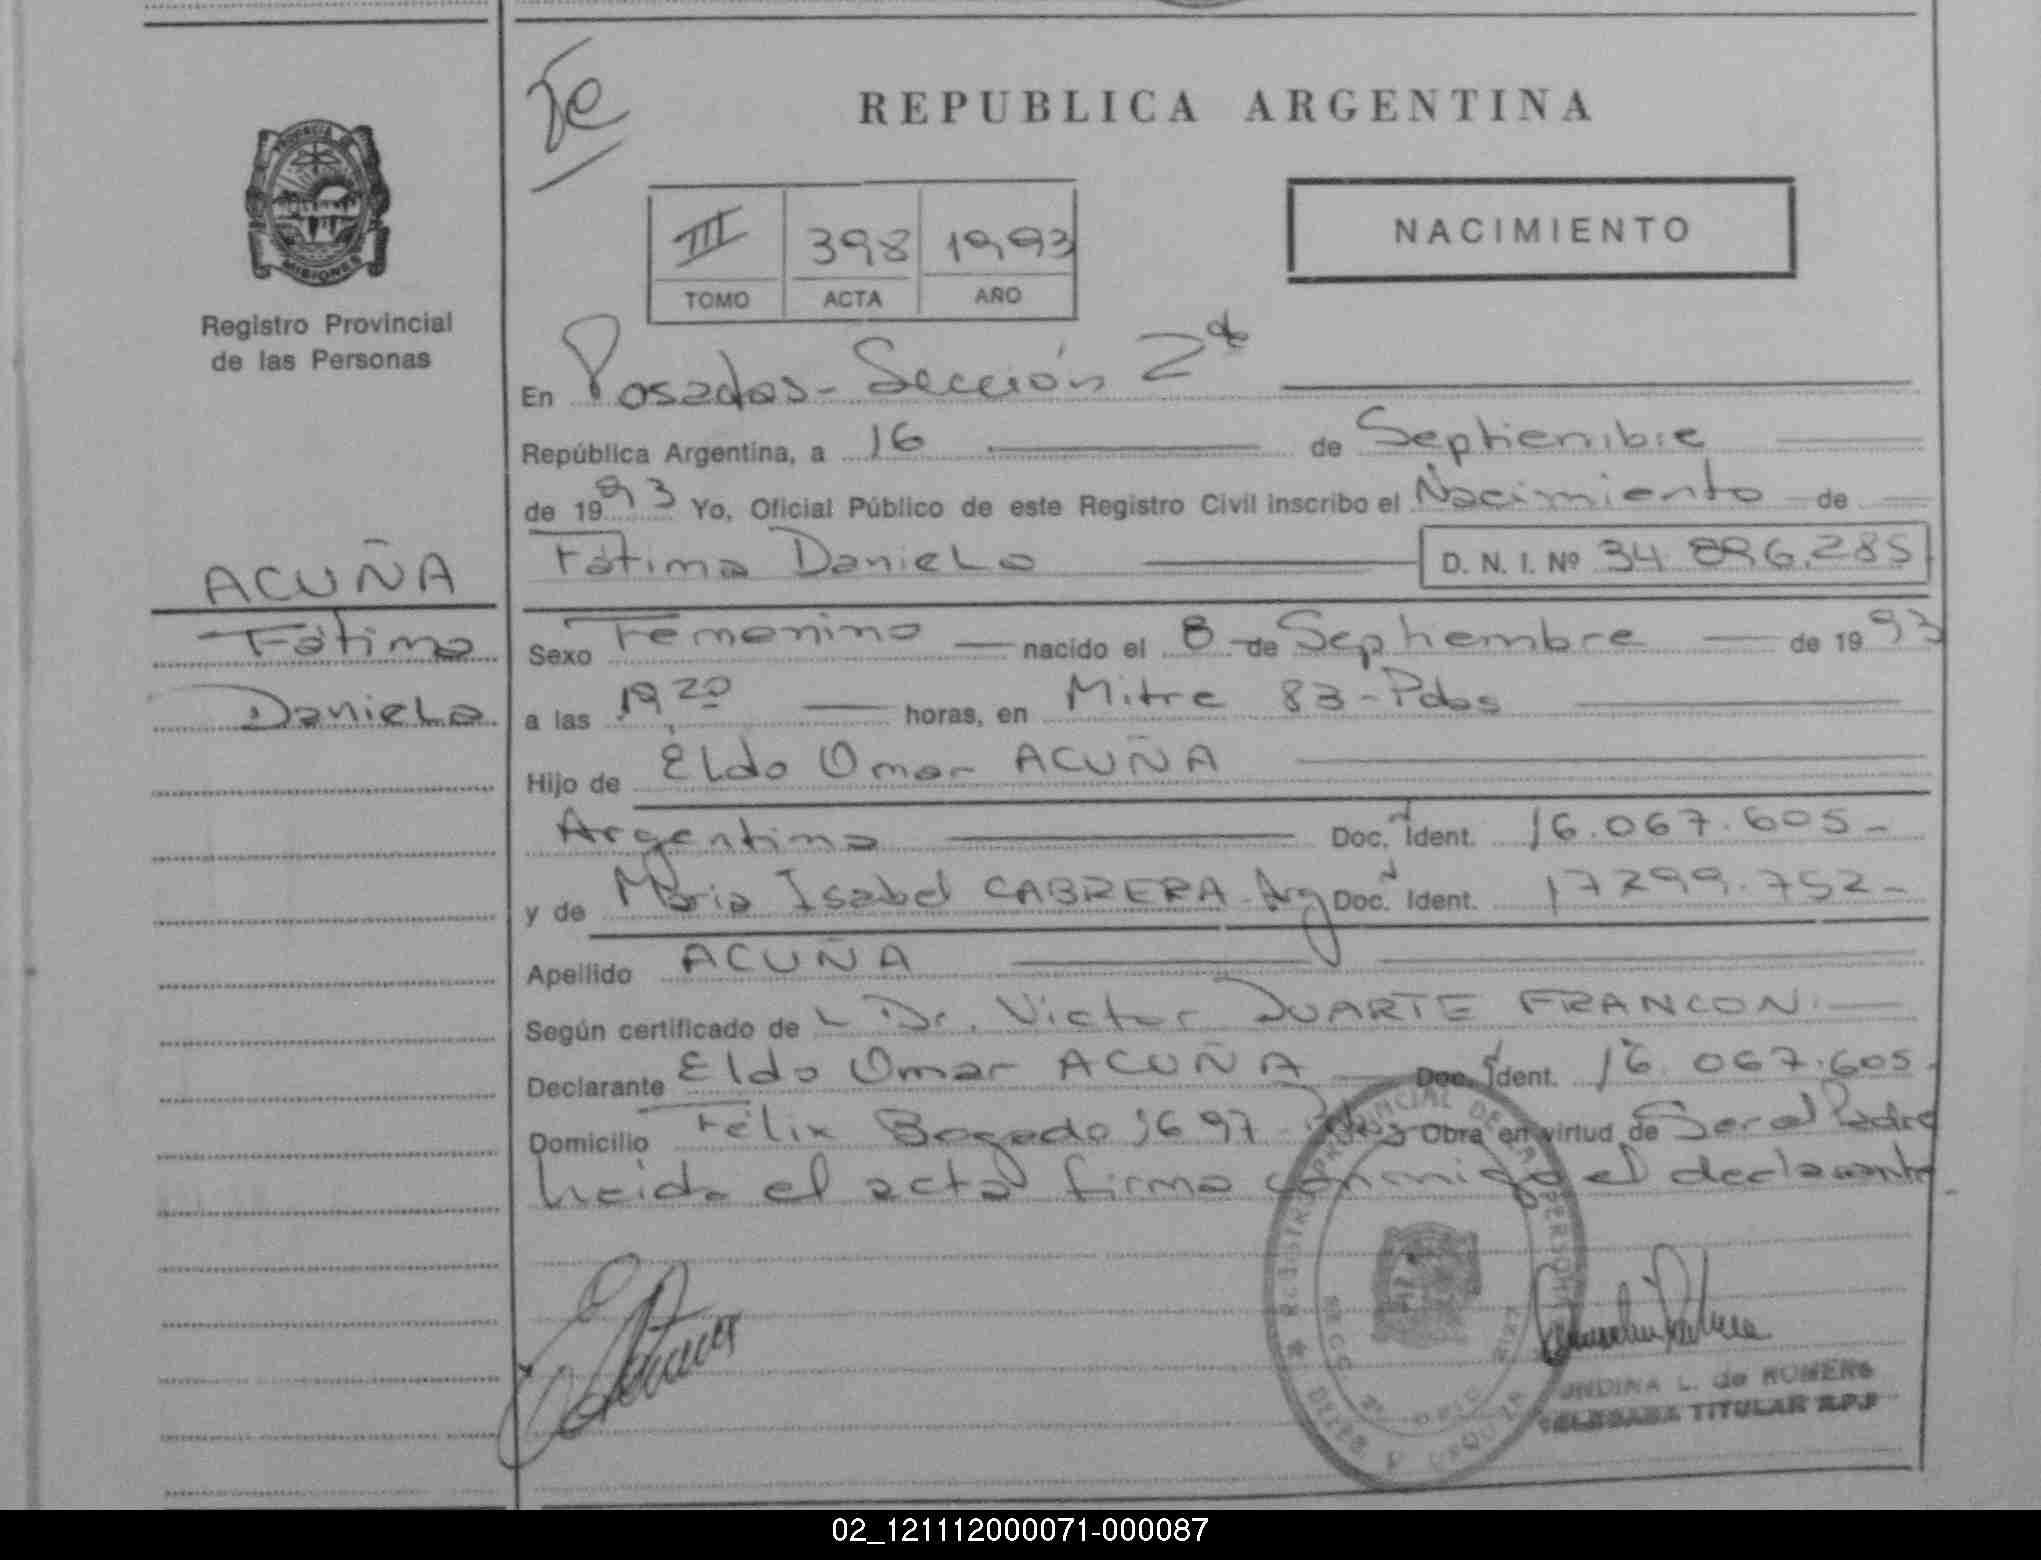 Te
REPUBLICA ARGENTINA
PROVINCIA DE
MISIONES
Registro Provincial
de las Personas
III 398 1993
TOMO ACTA AÑO
NACIMIENTO
En Posadas - Sección 2da
República Argentina, a 16 de Septiembre
de 1993 Yo, Oficial Público de este Registro Civil inscribo el Nacimiento de
Fátima Daniela D. N. I. Nº 34.896.285
ACUÑA
Fátima
Daniela
Sexo Femenino nacido el 8 de Septiembre de 1993
a las 19,20 horas, en Mitre 83 - Pdas
Hijo de Eldo Omar ACUÑA
Argentino Doc. Ident. 16.067.605-
y de Maria Isabel CABRERA - Arg Doc. Ident. 17299.752-
Apellido ACUÑA
Según certificado de L Dr. Victor DUARTE FRANCON.
Declarante Eldo Omar ACUÑA Doc. Ident. 16.067.605-
Domicilio Félix Bogado 1697 Pdas Obra en virtud de Ser el Padre
Leida el acta firma conmigo el declarante.
REGISTRO PROVINCIAL DE LAS PERSONAS
UNDINA L. de ROMERO
DELEGADA TITULAR R.P.P
02_121112000071-000087